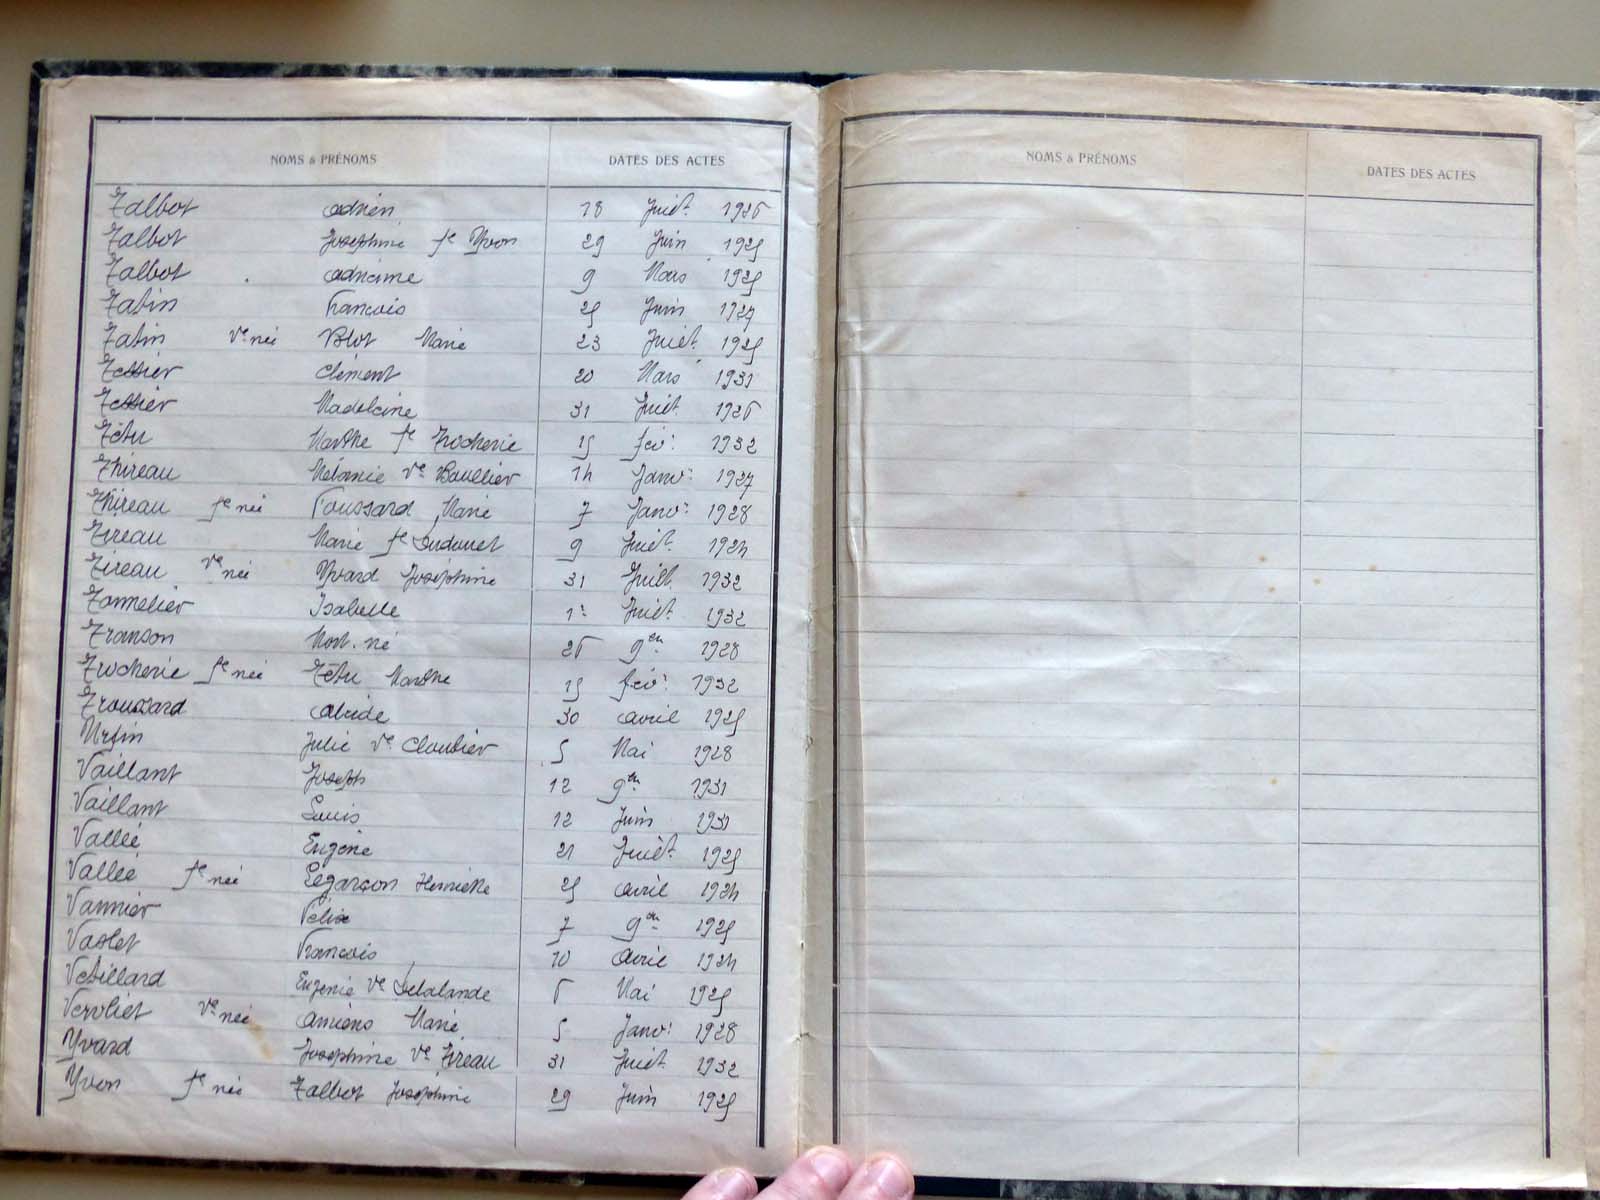 NOMS & PRÉNOMS DATES DES ACTES
Talbot Adrien 18 Juiet. 1926
Talbot Joséphine fe Yvon 29 Juin 1925
Talbot Adrienne 9 Mars 1925
Tatin François 25 Juin 1927
Tatin Ve née Blot Marie 23 Juiet. 1925
Tessier Clément 20 Mars 1931
Tessier Madeleine 31 Juiet. 1926
Têtu Marthe fe Trocherie 15 fév: 1932
Thireau Mélanie Ve Boullier 14 Janv: 1927
Thireau fe née Foussard Marie 7 Janv: 1928
Tireau Marie fe Ludouet 9 Juiet. 1924
Tireau Ve née Yvard Joséphine 31 Juill. 1932
Tonnelier Isabelle 1: Juiet. 1932
Transon Mort. né 26 9bre 1928
Trocherie fe née Têtu Marthe 15 fév: 1932
Troussard Alcide 30 avril 1925
Urfin Julie Ve Cloutier 5 Mai 1928
Vaillant Joseph 12 9bre 1931
Vaillant Louis 12 Juin 1931
Vallée Eugène 21 Juiet. 1925
Vallée fe née Legarçon Henriette 25 avril 1924
Vannier Félix 7 9bre 1925
Vaslet François 10 Avril 1924
Vétillard Eugénie Ve Delalande 6 Mai 1925
Vervliet Ve née Amiens Marie 5 Janv: 1928
Yvard Joséphine Ve Tireau 31 Juiet. 1932
Yvon fe née Talbot Joséphine 29 Juin 1925
NOMS & PRÉNOMS DATES DES ACTES